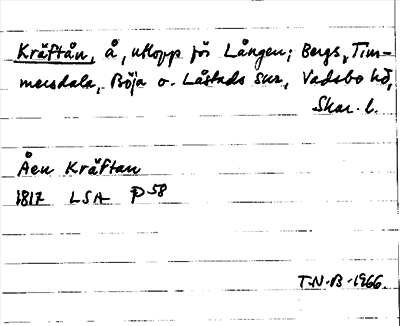 Kräftån, å, utlopp för Lången; Bergs, Tim-
mersdala, Böja o. Låstads snr, Vadsbo hd,
Skar. l.
Åen Kräftan
1817 LSA P 58
T.N.B. 1966.